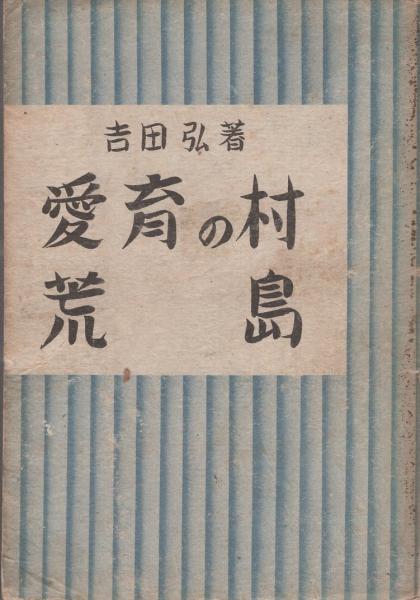 吉田弘著
愛育の村
荒島